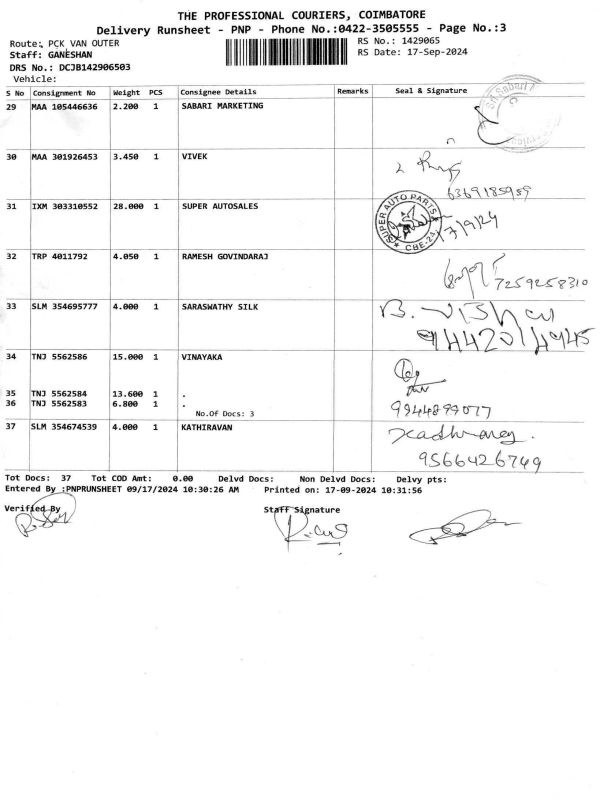 THE PROFESSIONAL COURIERS, COIMBATORE
Delivery Runsheet - PNP - Phone No.:0422-3505555 - Page No.:3
Route:, PCK VAN OUTER
RS No.: 1429065
Staff: GANESHAN
RS Date: 17-Sep-2024
DRS No.: DCJB142906503
Vehicle:
S No Consignment No Weight PCS Consignee Details Remarks Seal & Signature
29 MAA 105446636 2.200 1 SABARI MARKETING
Sri Sabari
30 MAA 301926453 3.450 1 VIVEK
6369185959
31 IXM 303310552 28.000 1 SUPER AUTOSALES
SUPER AUTO PARTS
CBE-23.
17/9/24
32 TRP 4011792 4.050 1 RAMESH GOVINDARAJ
7259258310
33 SLM 354695777 4.000 1 SARASWATHY SILK
34 TNJ 5562586 15.000 1 VINAYAKA
35 TNJ 5562584 13.600 1 .
36 TNJ 5562583 6.800 1 .
No.Of Docs: 3
9944899077
37 SLM 354674539 4.000 1 KATHIRAVAN
9566426749
Tot Docs: 37 Tot COD Amt: 0.00 Delvd Docs: Non Delvd Docs: Delvy pts:
Entered By :PNPRUNSHEET 09/17/2024 10:30:26 AM Printed on: 17-09-2024 10:31:56
Verified By Staff Signature